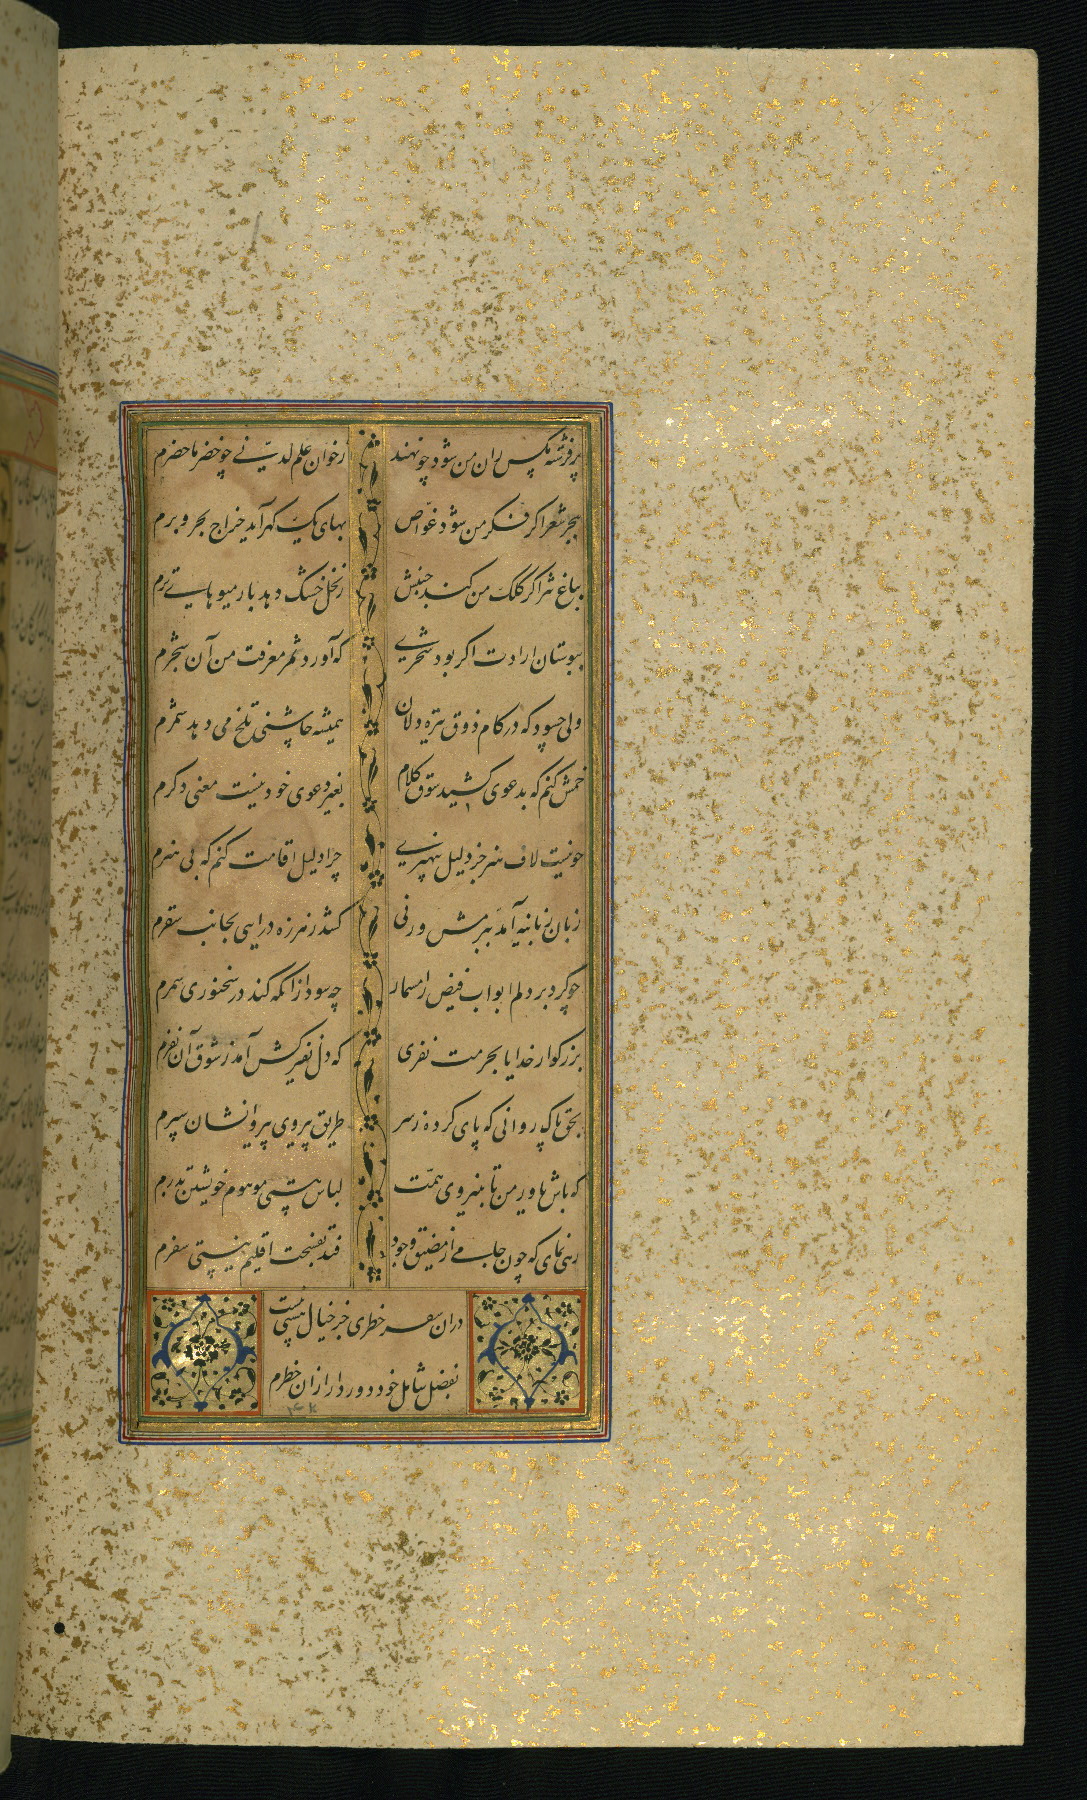 پر فرشته مگس ران من شود چو نهند ز خوان علم لدنی چو خضر ماحضرم
ببحر شعر اگر فکر من شود غواص بهای یک گهر آید خراج بحر و برم
بباغ نثر اگر کلک من کند جنبش ز نخل خشک دهد بار میوهای ترم
ببوستان ارادت اگر بود شجری که آورد ثمر معرفت من آن شجرم
ولی چه سود که در کام ذوق تیره دلان همیشه چاشنی تلخ می دهد ثمرم
خمش کنم که بدعوی کشید سوق کلام بغیر دعوی خود نیست معنی دگرم
چو نیست لاف هنر جز دلیل بی هنری چرا دلیل اقامت کنم که بی هنرم
زبان زبانیه آمد ببر مش ورنی کشد ز هرزه درایی بجانب سقرم
چو کرد بر دلم ابواب فیض از سمار چه سود از آنکه کند در سخنوری سمرم
بزرگوار خدایا بحرمت نفری که دل نفیر کش آمد ز شوق آن نفرم
بحق پاک روانی که پای کرده ز سر طریق پیروی پیروانشان سپرم
که باش یاور من تا بنیروی همت لباس هستی موهوم خویشتن بدرم
رهی نمای که چون جامی از مضیق وجود فتد بفسحت اقلیم نیستی سفرم
در آن سفر خطری جز خیال هستی نیست
بفضل شامل خود دور دار از آن خطرم